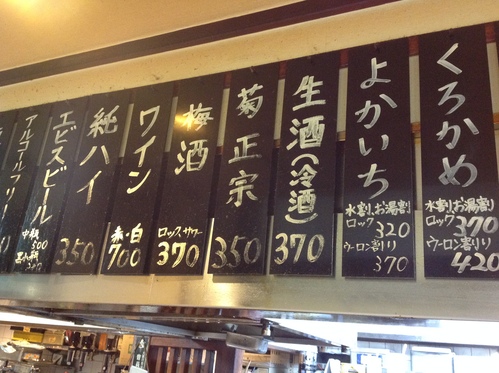 くろかめ
水割り、お湯割
ロック 370
ウーロン割り
420
よかいち
水割、お湯割
ロック 320
ウーロン割り
370
生酒(冷酒)
370
菊正宗
350
梅酒
ロック、サワー
370
ワイン
赤・白
700
純ハイ
350
エビスビール
中瓶
500
アルコールフリー